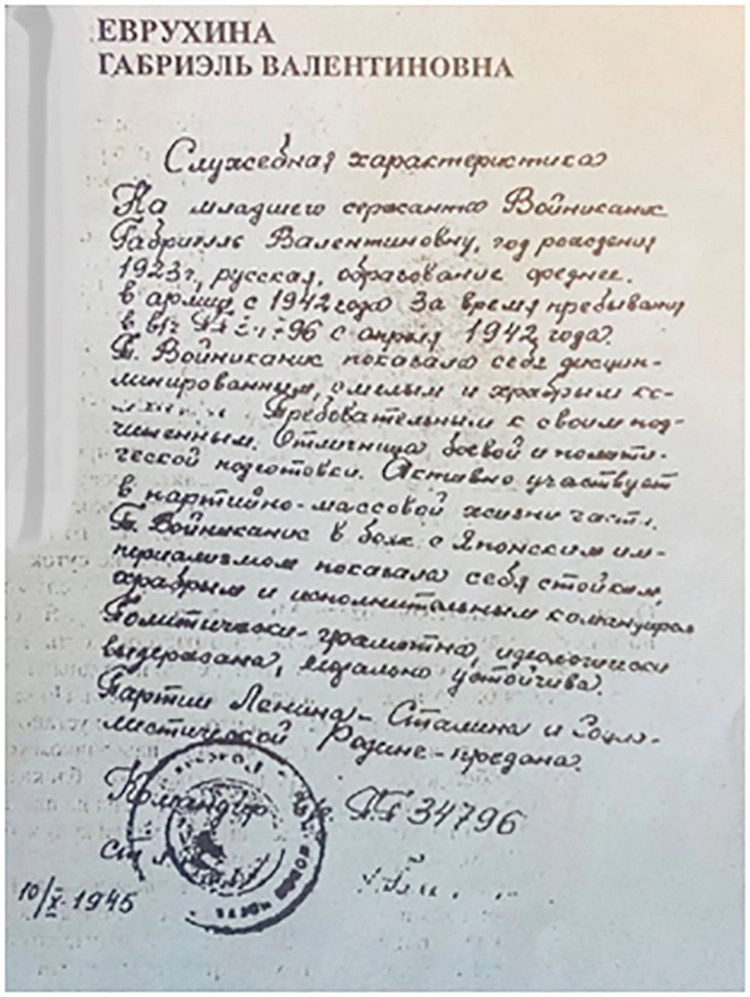 ЕВРУХИНА
ГАБРИЭЛЬ ВАЛЕНТИНОВНА
Служебная характеристика
На младшего сержанта Войниканис
Габриэль Валентиновну, год рождения
1923г., русская, образование среднее.
в армии с 1942 года За время пребывания
в в/ч 96 с апреля 1942 года.
Т. Войниканис показала себя дисцип-
линированным, смелым и храбрым ко-
Требовательным к своим под-
чиненным. Отличница боевой и полити-
ческой подготовки. Активно участвует
в партийно-массовой жизни части.
Т. Войниканис в боях с Японским им-
периализмом показала себя стойким,
храбрым и исполнительным командиром
Политически-грамотна, идеологически
выдержана, морально устойчива.
Партии Ленина-Сталина и Социа-
листической Родине-предана.
Командир ПП 34796
10/X-1945